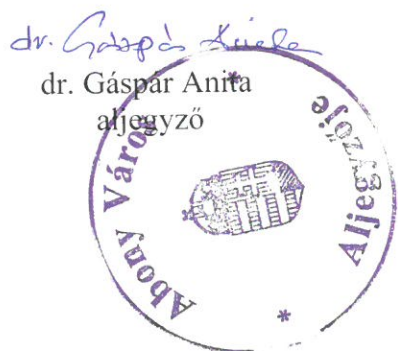 dr. Gáspár Anita
dr. Gáspár Anita
aljegyző
Abony Város * Aljegyzője *